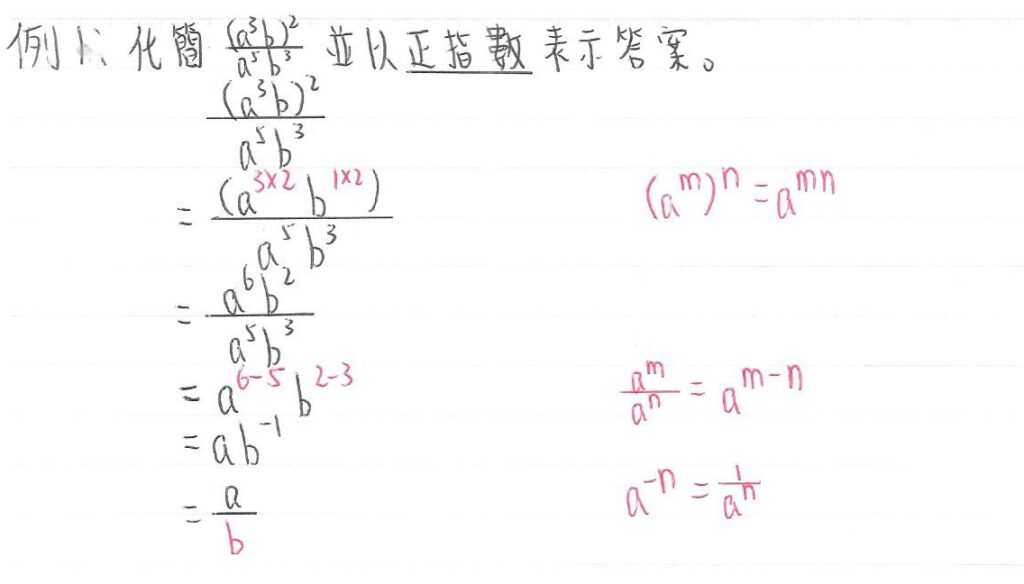 例1: 化簡 (a³b)²/a⁵b³ 並以正指數表示答案。
(a³b)²/a⁵b³
= (a³ˣ²b¹ˣ²)/a⁵b³ (aᵐ)ⁿ = aᵐⁿ
= a⁶b²/a⁵b³
= a⁶⁻⁵b²⁻³ aᵐ/aⁿ = aᵐ⁻ⁿ
= ab⁻¹
= a/b a⁻ⁿ = 1/aⁿ